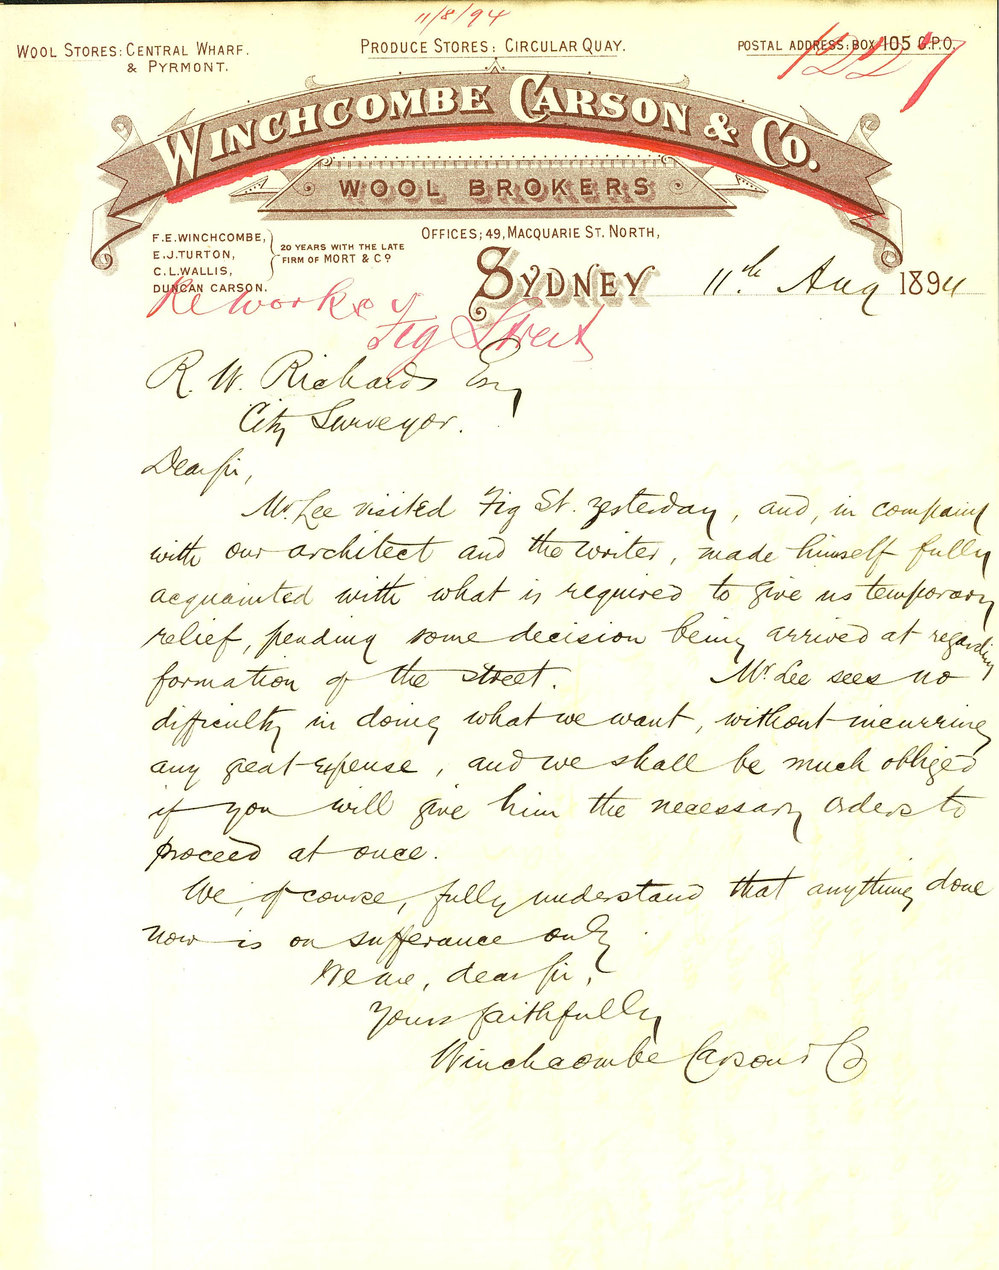 11/8/94
WOOL STORES: CENTRAL WHARF. & PYRMONT.
PRODUCE STORES: CIRCULAR QUAY.
POSTAL ADDRESS: BOX 105 G.P.O.
1227
WINCHCOMBE CARSON & CO.
WOOL BROKERS
F.E. WINCHCOMBE,
E.J. TURTON,
C.L. WALLIS,
DUNCAN CARSON.
20 YEARS WITH THE LATE
FIRM OF MORT & CO
OFFICES; 49, MACQUARIE ST. NORTH,
SYDNEY 11th Aug 1894
Re works
Fig Street
R. W. Richards Esq
City Surveyor.
Dear Sir,
Mr. Lee visited Fig St. yesterday, and, in company
with our architect and the writer, made himself fully
acquainted with what is required to give us temporary
relief, pending some decision being arrived at regarding
formation of the street. Mr. Lee sees no
difficulty in doing what we want, without incurring
any great expense, and we shall be much obliged
if you will give him the necessary orders to
proceed at once.
We, of course, fully understand that anything done
now is on sufferance only.
We are, dear Sir,
Yours faithfully
Winchcombe Carson & Co